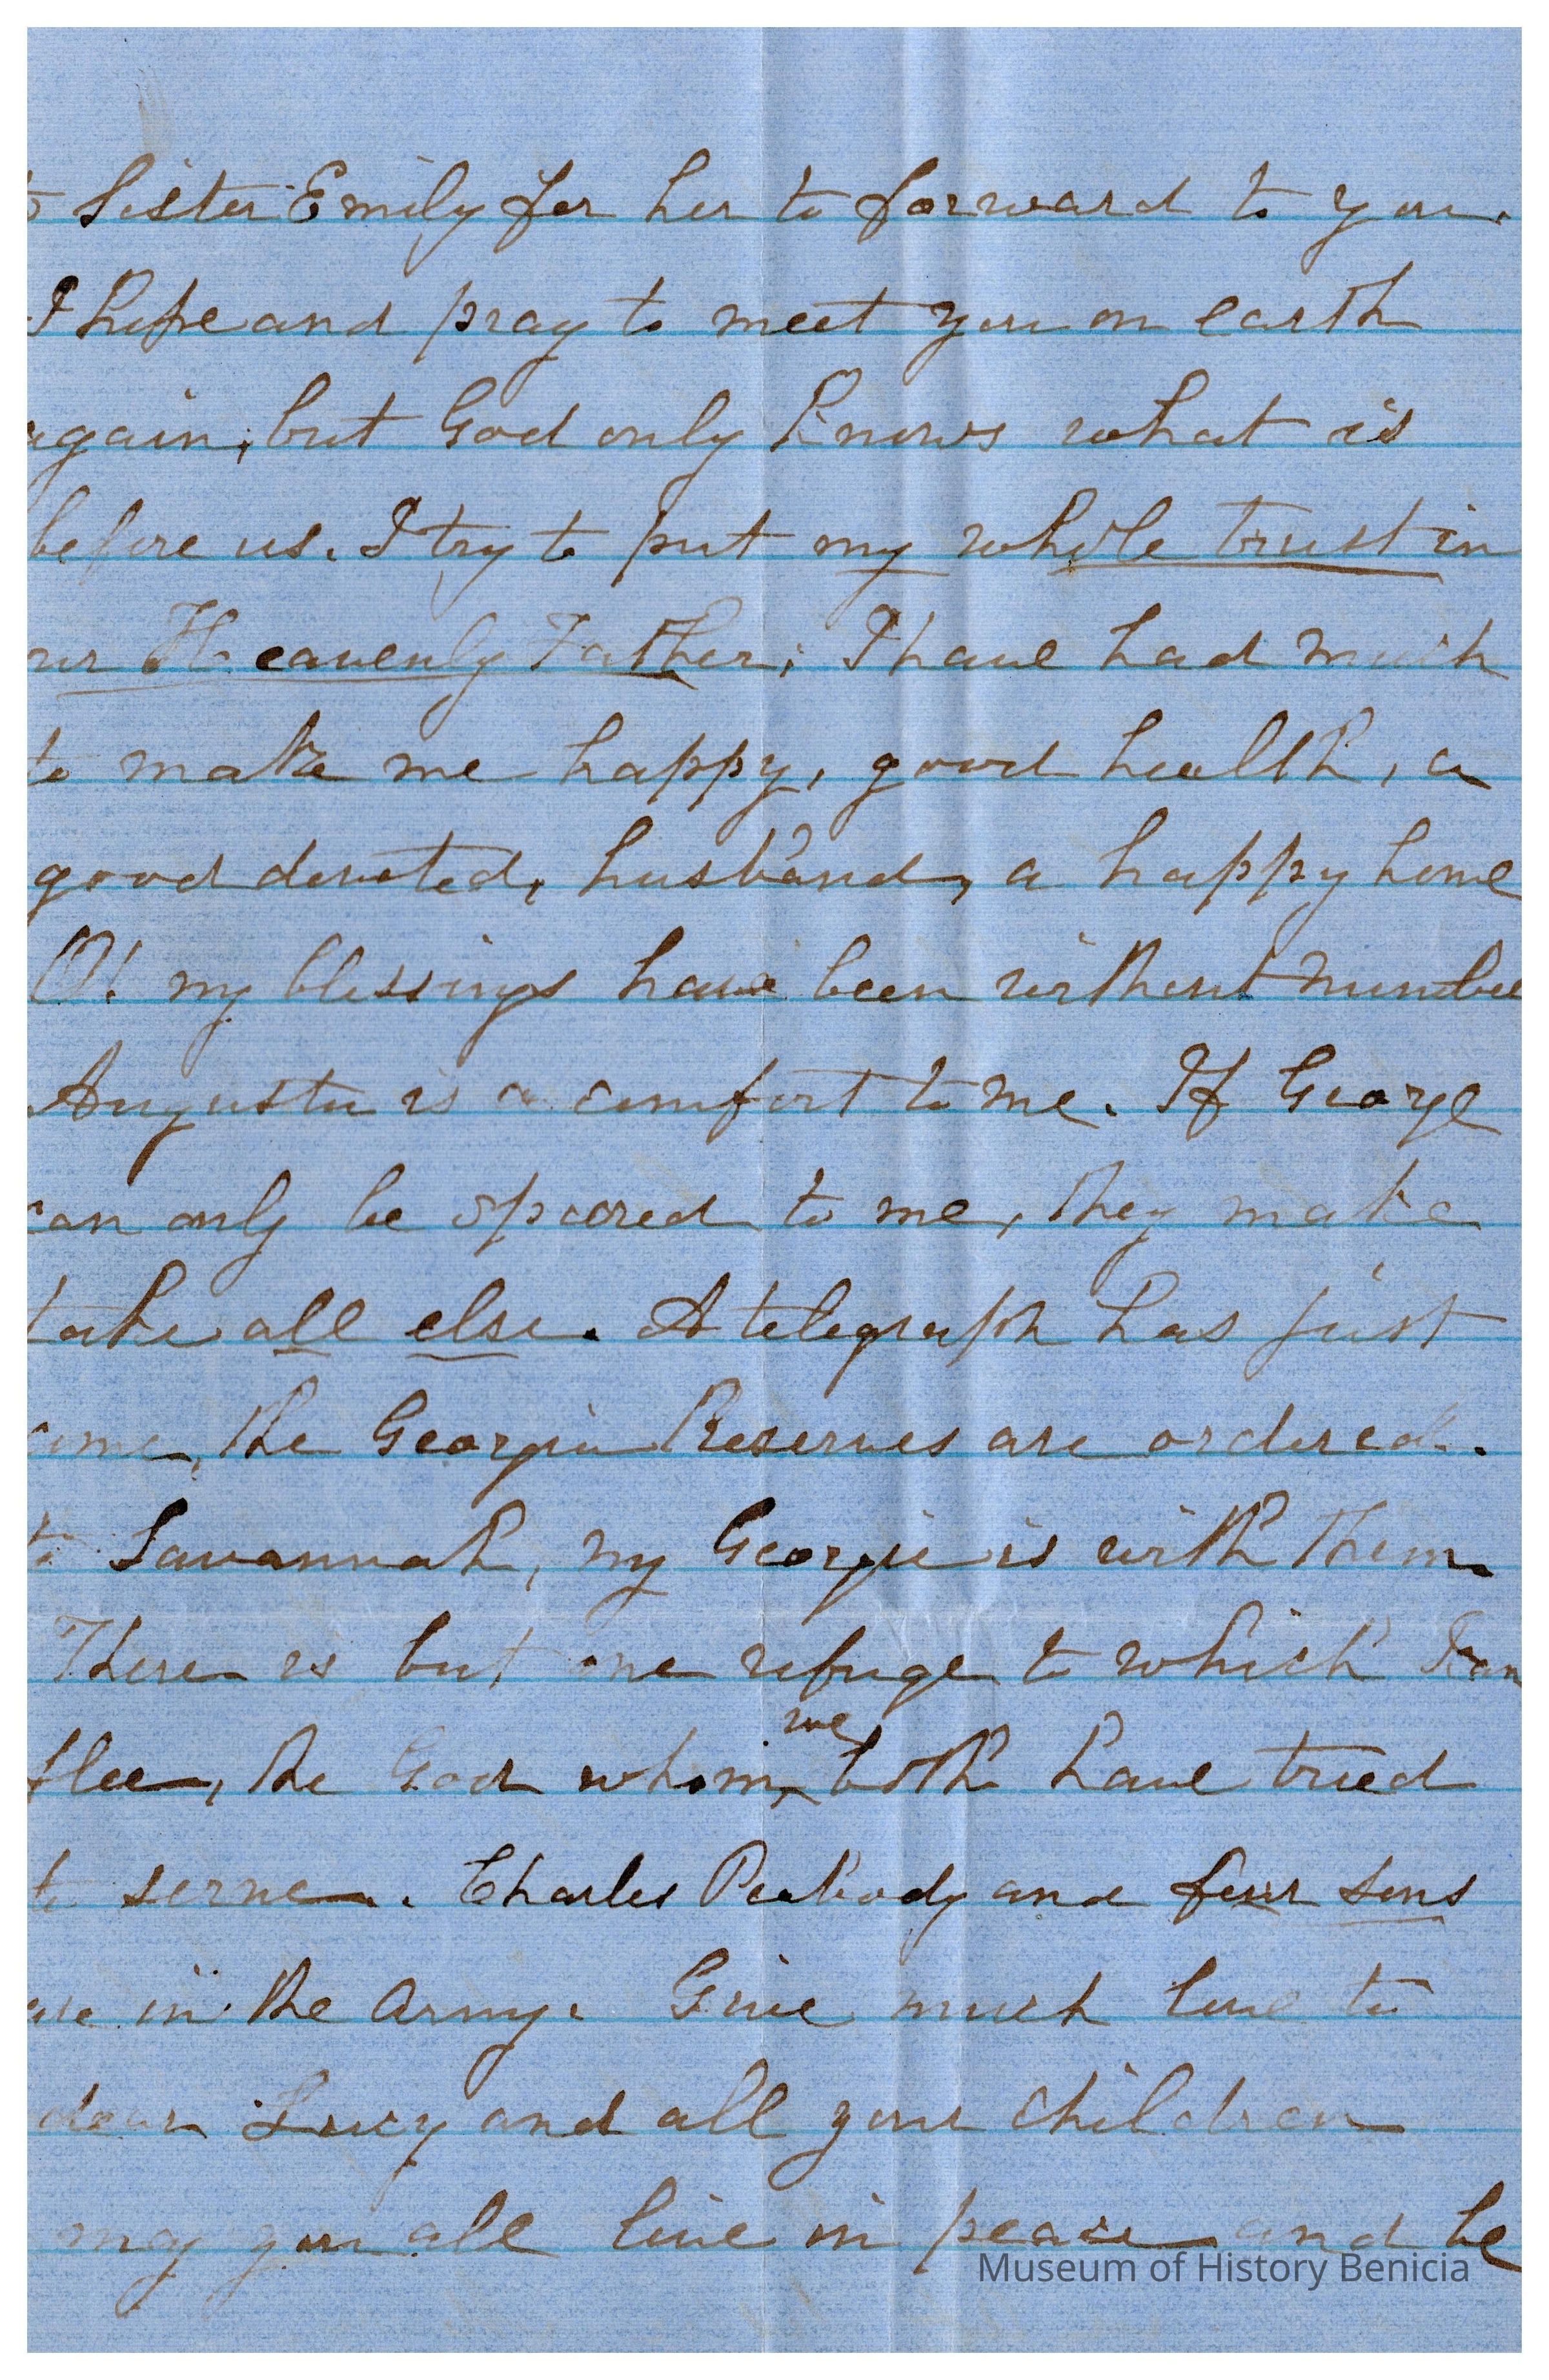 to Sister Emily for her to forward to you.
I hope and pray to meet you on earth
again, but God only knows what is
before us. I try to put my whole trust in
our Heavenly Father; I have had much
to make me happy, good health, a
good devoted, husband, a happy home
O! my blessings have been without numbe
Augusta is a comfort to me. If George
can only be spared to me, they make
take all else. A telegraph has just
come, the Georgia Reserves are ordered.
to Savannah, my Georgie is with them
There is but one refuge to which I can
flee, the God whom we both have tried
to serve. Charles Peabody and four sons
are in the Army. Give much love to
dear Lucy and all your children
may you all live in peace and be
Museum of History Benicia